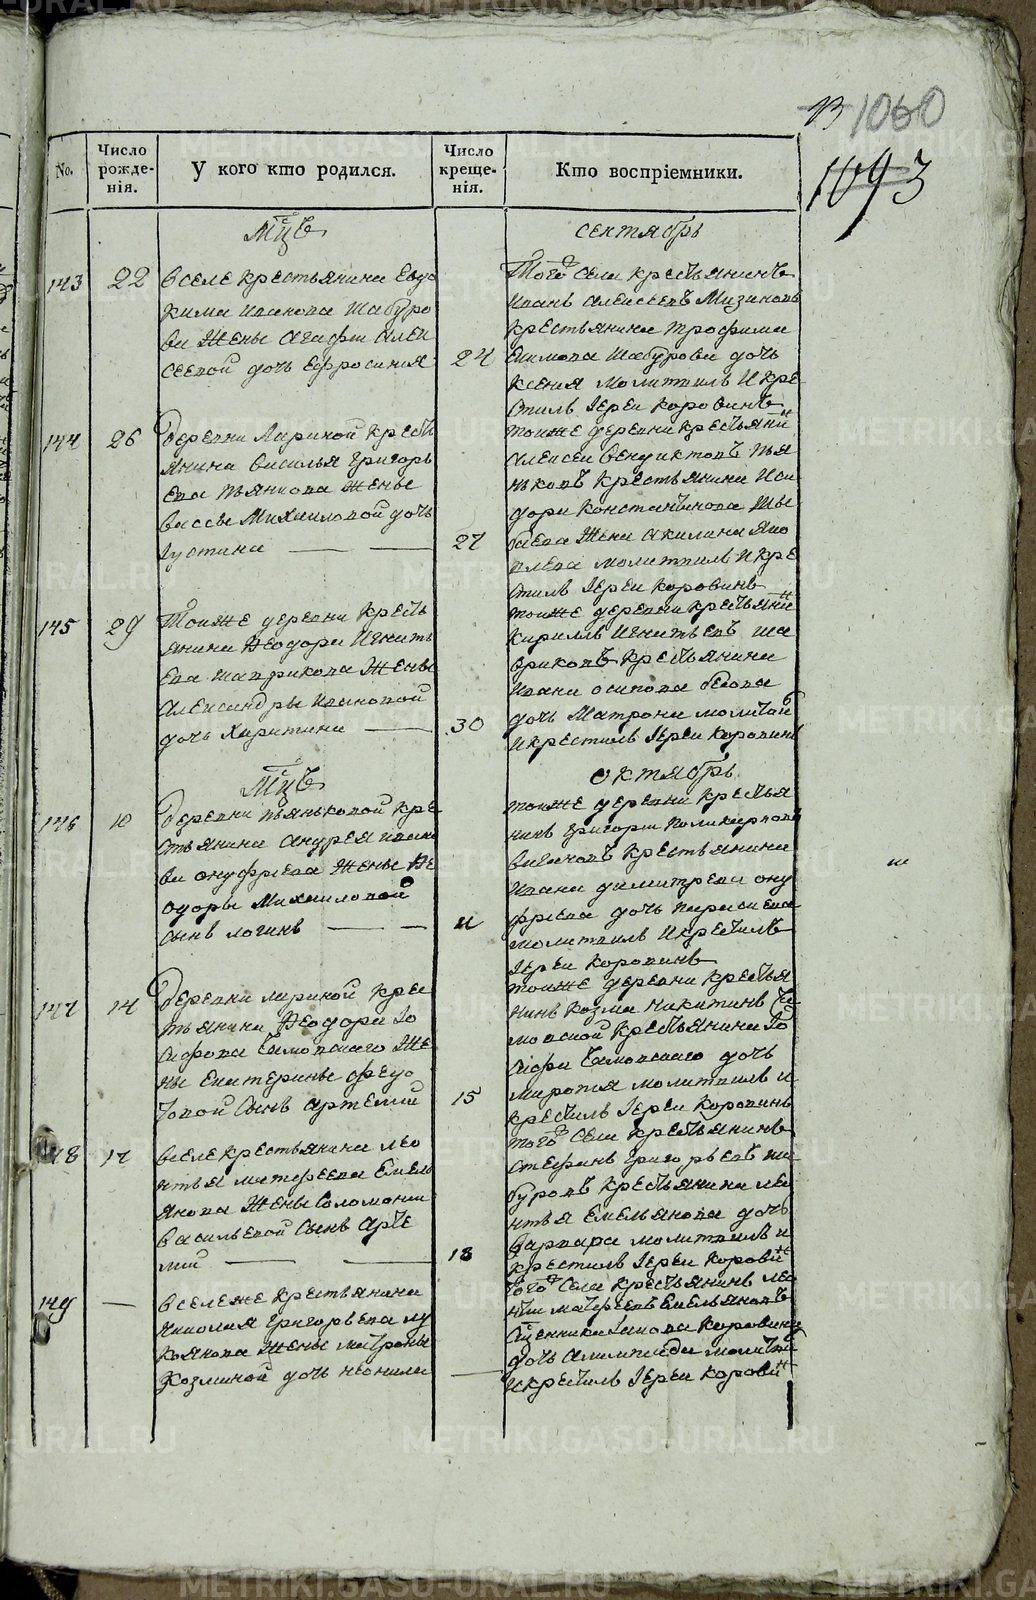 1060
1093
No.
Число рожде-нія.
У кого кто родился.
Число креще-нія.
Кто воспріемники.
Мцъ
сентябрь
143
22
вселе крестьянина Евдо
кима иванова шабуро
ва жены агафьи алек
сеевой дочь Ефросиния
24
Того села крестьянинъ
иванъ алексеевъ Мизиновъ
крестьянина трофима
Екимова шабурова дочь
ксения молитвилъ и кре
стилъ Іереи коровинъ
144
26
деревни Лариной кресть
янина василья григорь
ева пьянкова жены
вассы Михаиловой дочь
Іустина
27
тоиже деревни крестьяни
алексеи венедиктовъ пья
нковъ крестьянина
дора константинова
жена акилина яко
влева молитвилъ и кре
стилъ Іереи коровинъ
145
29
Тоиже деревни кресть
янина Феодора игнать
ева шаврикова жены
александры ивановой
дочь Харитина
30
тоиже деревни крестьяни
кирилъ игнатьевъ ша
вриковъ крестьянина
ивана осипова белова
дочь Матрона молитви
и крестилъ Іереи коровинъ
Мцъ
октябрь
146
10
деревни пьянковой кре
стьянина андрея ивано
ва онуфриева жены Фе
одоры Михаиловой
сынъ логинъ
11
тоиже деревни крестья
нинъ григореи поликарповъ
крестьянина
ивана димитрева ону
фриева дочь параскева
молитвилъ и крестилъ
Іереи коровинъ
147
14
деревни лариной крес
тьянина Феодора Іо
сифова Жe
ны Екатерины федо
товой сынъ артемии
15
тоиже деревни крестья
нинъ козма никитинъ
крестьянина Іо
сифа дочь
мирония молитвилъ и
крестилъ Іереи коровинъ
148
17
вселе крестьянина лео
нтья матфеева Емель
янова жены Соломонии
васильевой сынъ арте
мии
18
того села крестьянинъ
стефанъ григорьевъ ша
буровъ крестьянина лео
нтья Емельянова дочь
варвара молитвилъ и
крестилъ Іереи корови
149
всележе крестьянина
николая григорьева лу
коянова жены матроны
козминой дочь неонила
того села крестьянинъ лео
нтии матфеевъ Емельяновъ
сщенника Іакова коровина
дочь олимпиада молитви
и крестилъ Іереи корови
METRIKI.GASO-URAL.RU